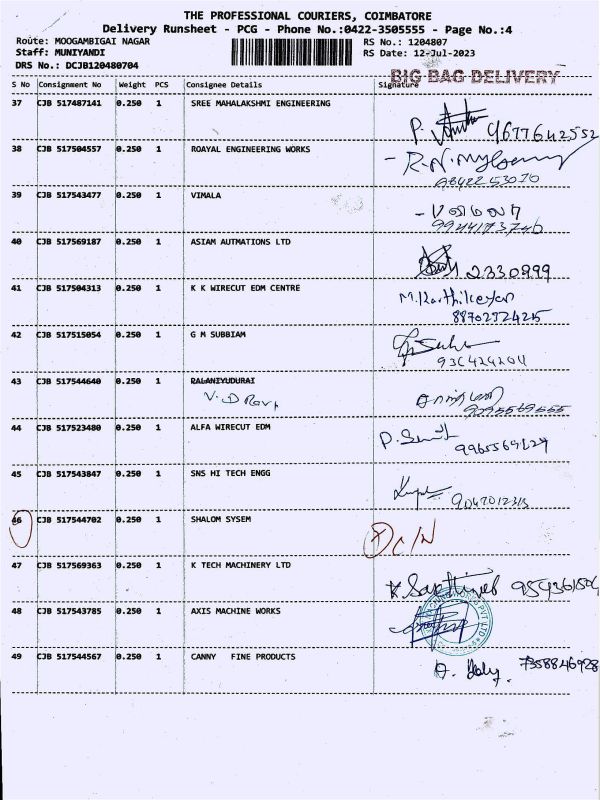 THE PROFESSIONAL COURIERS, COIMBATORE
Delivery Runsheet - PCG - Phone No.:0422-3505555 - Page No.:4
Route: MOOGAMBIGAI NAGAR RS No.: 1204807
Staff: MUNIYANDI RS Date: 12-Jul-2023
DRS No.: DCJB120480704
BIG BAG DELIVERY
S No Consignment No Weight PCS Consignee Details Signature
37 CJB 517487141 0.250 1 SREE MAHALAKSHMI ENGINEERING
P. 9677642552
38 CJB 517504557 0.250 1 ROAYAL ENGINEERING WORKS
9842253070
39 CJB 517543477 0.250 1 VIMALA
40 CJB 517569187 0.250 1 ASIAM AUTMATIONS LTD
2330899
41 CJB 517504313 0.250 1 K K WIRECUT EDM CENTRE
M.Karthikeyan
42 CJB 517515054 0.250 1 G M SUBBIAM
43 CJB 517544640 0.250 1 RALANIYUDURAI
44 CJB 517523480 0.250 1 ALFA WIRECUT EDM
45 CJB 517543847 0.250 1 SNS HI TECH ENGG
9047012313
46 CJB 517544702 0.250 1 SHALOM SYSEM
47 CJB 517569363 0.250 1 K TECH MACHINERY LTD
48 CJB 517543785 0.250 1 AXIS MACHINE WORKS
49 CJB 517544567 0.250 1 CANNY FINE PRODUCTS
7358846928